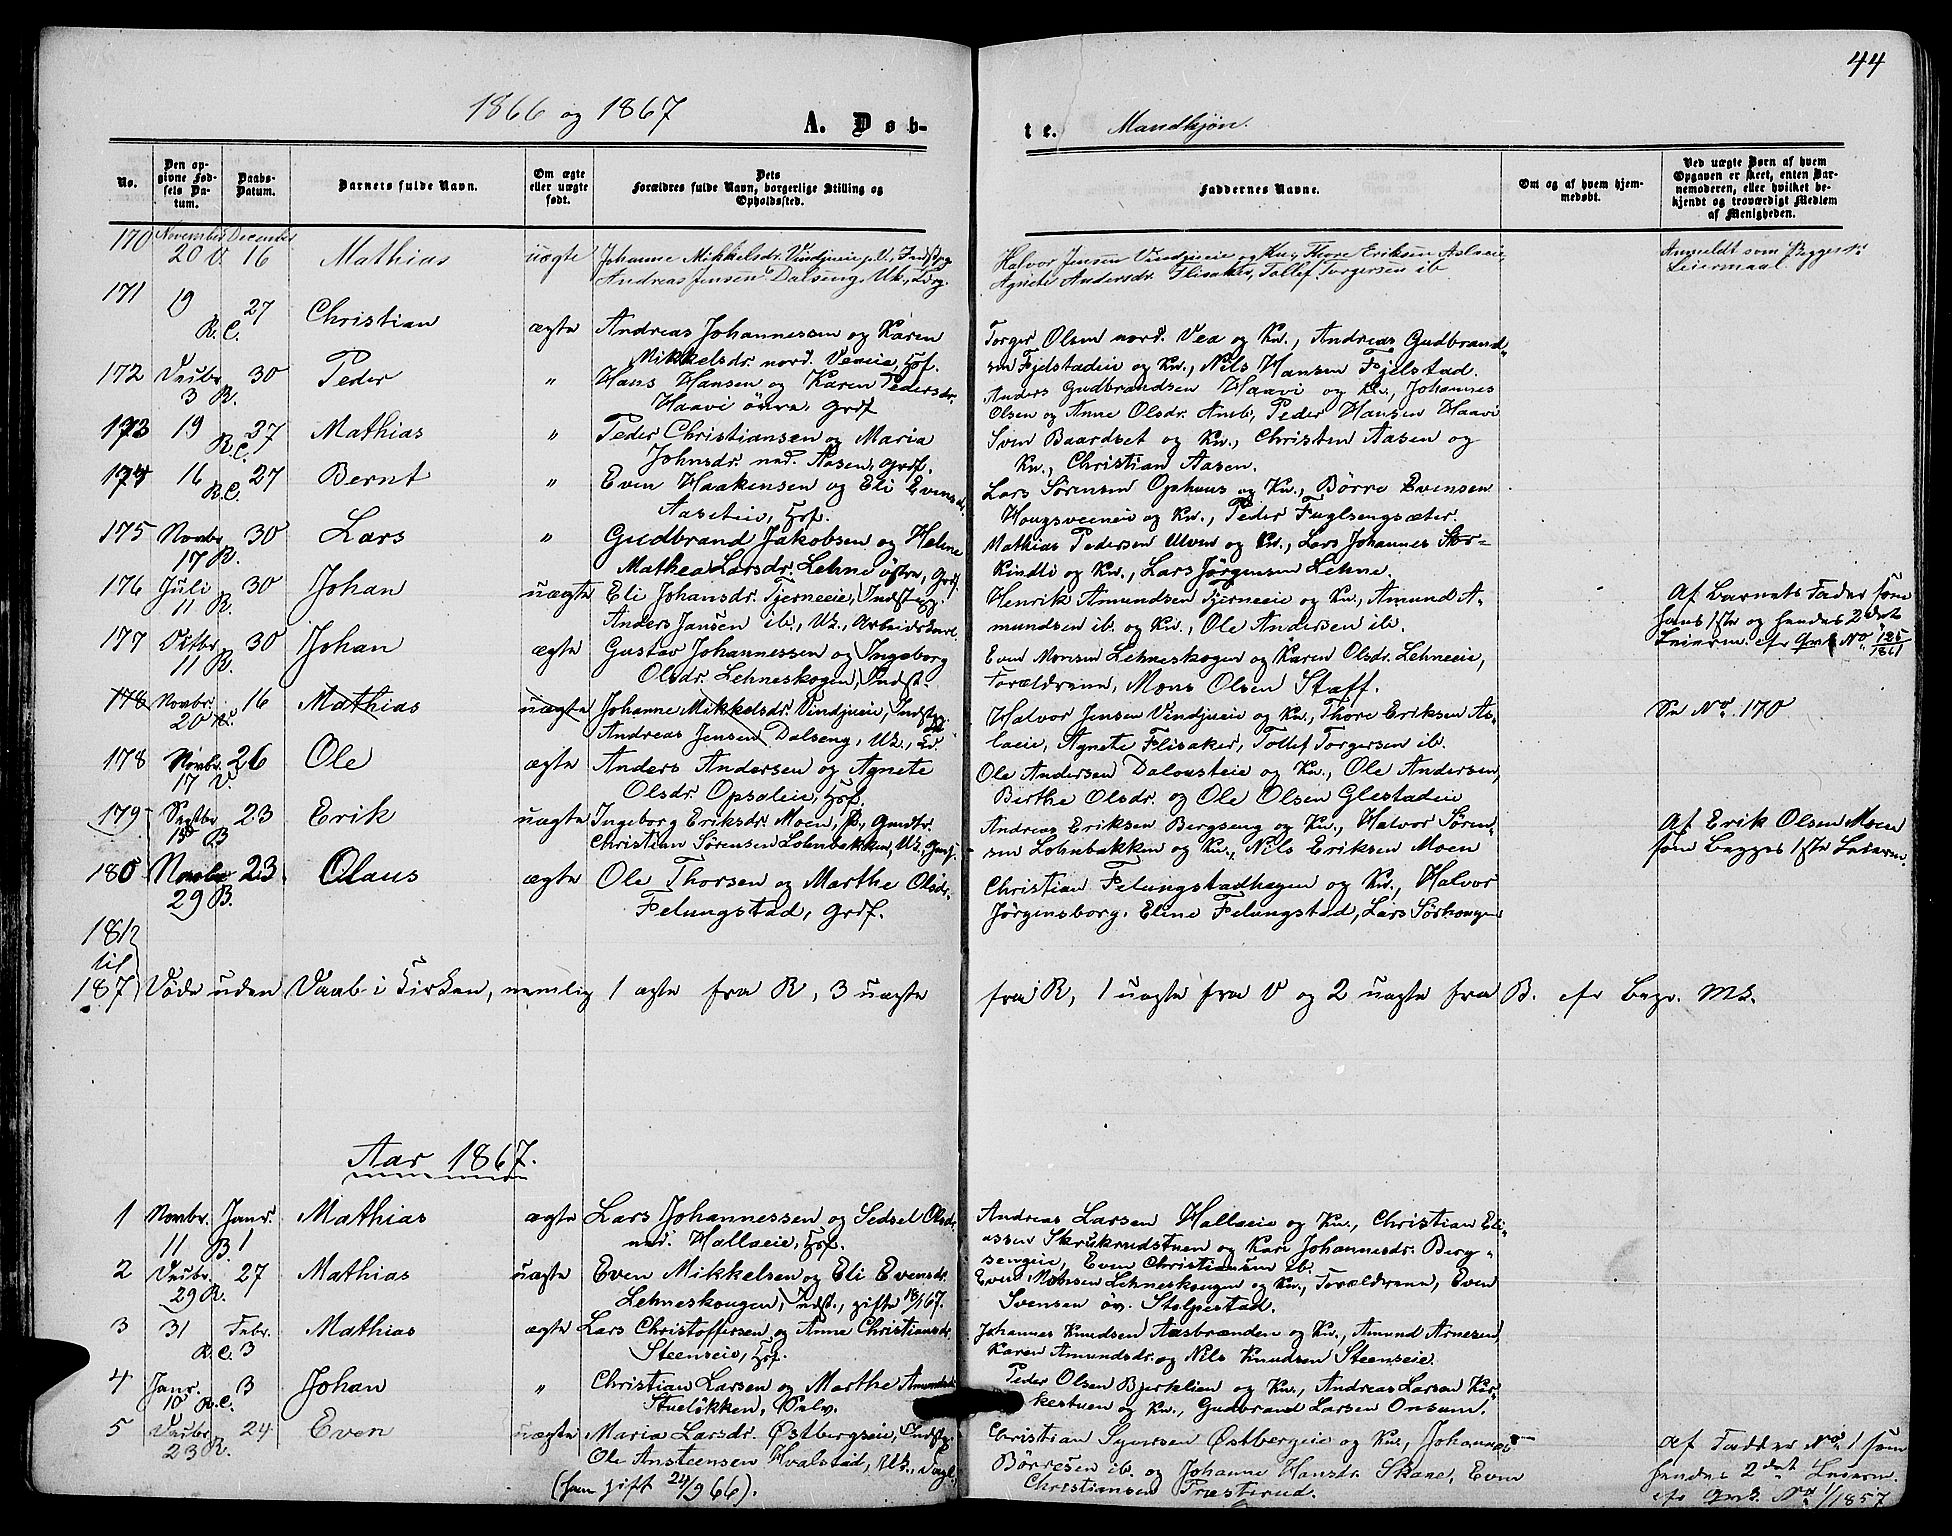 44
1866 og 1867 A. Døb- te. Mandkjøn.
No.
Den opgivne Fødsels Datum.
Daabs-Datum.
Barnets fulde Navn.
Om ægte eller uægte født.
Dets Forældres fulde Navn, borgerlige Stilling og Opholdssted.
Faddernes Navne.
Om og af hvem hjemmedøbt.
Ved uægte Børn af hvem Opgaven er skeet, enten Barnemoderen, eller hvilket bekjendt og troværdigt Medlem af Menigheden.
170 November 20 V. December 16 Mathias uægte Johanne Mikkelsdr. Vindjueie, Andreas Jensen Dalseng, Uk.,
Halvor Jensen Vindjueie og Kn., Thore Eriksen Aslaeie
Agnete Andersdr. Flisaker, Tollef Torgersen ib.
Anmeldt som Begges
Leiermaal
171 19 R. C. 27 Christian ægte Andreas Johannessen og Karen
Mikkelsdr. nord. Veaeie, Hsf.
Torger Olsen nord. Vea og Kn., Andreas Gudbrand-
sen Fjelstadeie og Kn., Nils Hansen Fjelstad.
172 Decbr. 3 R. 30 Peder " Hans Hansen og Karen Pedersdr.
Haavi övre, Grdf.
Anders Gudbrandsen Haavi og Kn., Johannes
Olsen og Anne Olsdr. Peder Hansen Haavi
173 19 R. C. 27 Mathias " Peder Christiansen og Maria
Johnsdr. ned. Aasen, Grdf.
Sven Baardset og Kn., Christen Aasen og
Kn., Christian Aasen.
174 16 R. C. 27 Bernt " Even Haakensen og Eli Evensdr.
Aaseteie, Hsf.
Lars Sörensen Ophuus og Kn., Börre Evensen
Hougsveeneie og Kn., Peder Fuglsengsæter.
175 Novbr. 17 R. 30 Lars " Gudbrand Jakobsen og Helene
Mathea Larsdr. Lehne östre, Grdf.
Mathias Pedersen Ulven og Kn., Lars Johannes
Kindli og Kn., Lars Jörgensen Lehne.
176 Juli 11 R. 30 Johan uægte Eli Johansdr. Tjerneeie, Indstpg.
Anders Jansen ib., Uk., Arbeidskarl.
Henrik Amundsen Tjerneeie og Kn., Amund A-
mundsen ib. og Kn., Ole Andersen ib.
Af Barnets Fader som
hans 1ste og hendes 2det
Leierm. cfr No 125/1861
177 Octbr. 11 R. 30 Johan ægte Gustav Johannessen og Ingeborg
Olsdr. Lehneskogen, Indst.
Even Monsen Lehneskogen og Karen Olsdr. Lehneeie,
Forældrene, Mons Olsen Staff.
178 Novbr. 20 V. 16 Mathias uægte Johanne Mikkelsdr. Vindjueie, Indstpg.
Andreas Jensen Dalseng, Uk.,
Halvor Jensen Vindjueie og Kn., Thore Eriksen As-
laeie, Agnete Flisaker, Tollef Torgersen ib.
Se No. 170
178 Novbr. 17 V. 26 Ole ægte Anders Andersen og Agnete
Olsdr. Opsaleie, Hsf.
Ole Andersen Dalousteie og Kn., Ole Andersen,
Berthe Olsdr. og Ole Olsen Glestadeie
179 Septbr. 15 B 23 Erik uægte Ingeborg Eriksdr. Moen,
Christian Sörensen Lohnbakken, Uk.
Andreas Eriksen Bergseng og Kn., Halvor Sören-
sen Lohnbakken og Kn., Nils Eriksen Moen
Af Erik Olsen Moen
som Begges 1ste Leierm.
180 Novbr 29 B. 23 Olaus ægte Ole Thorsen og Marthe Olsdr.
Felungstad, Grdf.
Christian Felungstadhagen og Kn., Halvor
Jörgensborg, Eline Felungstad, Lars Sörhougen
181
til
187 Döde uden Daab i Kirken, nemlig 1 ægte fra R, 3 uægte fra R, 1 uægte fra V og 2 uægte fra B. cfr Begr. Mk.
Aar 1867.
1 Novbr. 11 B. Janr. 1 Mathias ægte Lars Johannessen og Sedsel Olsdr.
ned. Hallaeie, Hsf.
Andreas Larsen Hallaeie og Kn., Christian Eli-
assen Skrukrudstuen og Kari Johannesdr. Berg-
sengeie, Even Christiansen ib.
2 Decbr. 29 R. 27 Mathias uægte Even Mikkelsen og Eli Evensdr.
Lehneskougen, Indst., gifte 18/1 67.
Even Monsen Lehneskougen og Kn., Forældrene, Even
Svensen öv. Stolpestad.
3 31 R. C. Febr. 3 Mathias ægte Lars Christoffersen og Anne Christiansdr.
Steenseie, Hsf.
Johannes Knudsen Aasbrænden og Kn., Amund Arnesen,
Karen Amundsdr. og Nils Knudsen Steenseie.
4 Janr. 10 R. C. 3 Johan " Christian Larsen og Marthe Amundsdr.
Stuelökken,
Peder Olsen Bjerkelien og Kn., Andreas Larsen Kir-
kestuen og Kn., Gudbrand Larsen Onsum.
5 Decbr. 23 R. 24 Even uægte Maria Larsdr. Østbergseie, Indstpg.
Ole Ansteensen Hvalstad, Uk.,
(ham gift 24/9 66).
Christian Syversen Østbergeie og Kn., Johannes
Börresen ib. og Johanne Hansdr. Skare, Even
Christiansen Træsterud.
Af Fadder No. 1 som
hendes 2det Leierm.
cfr No 1/1857